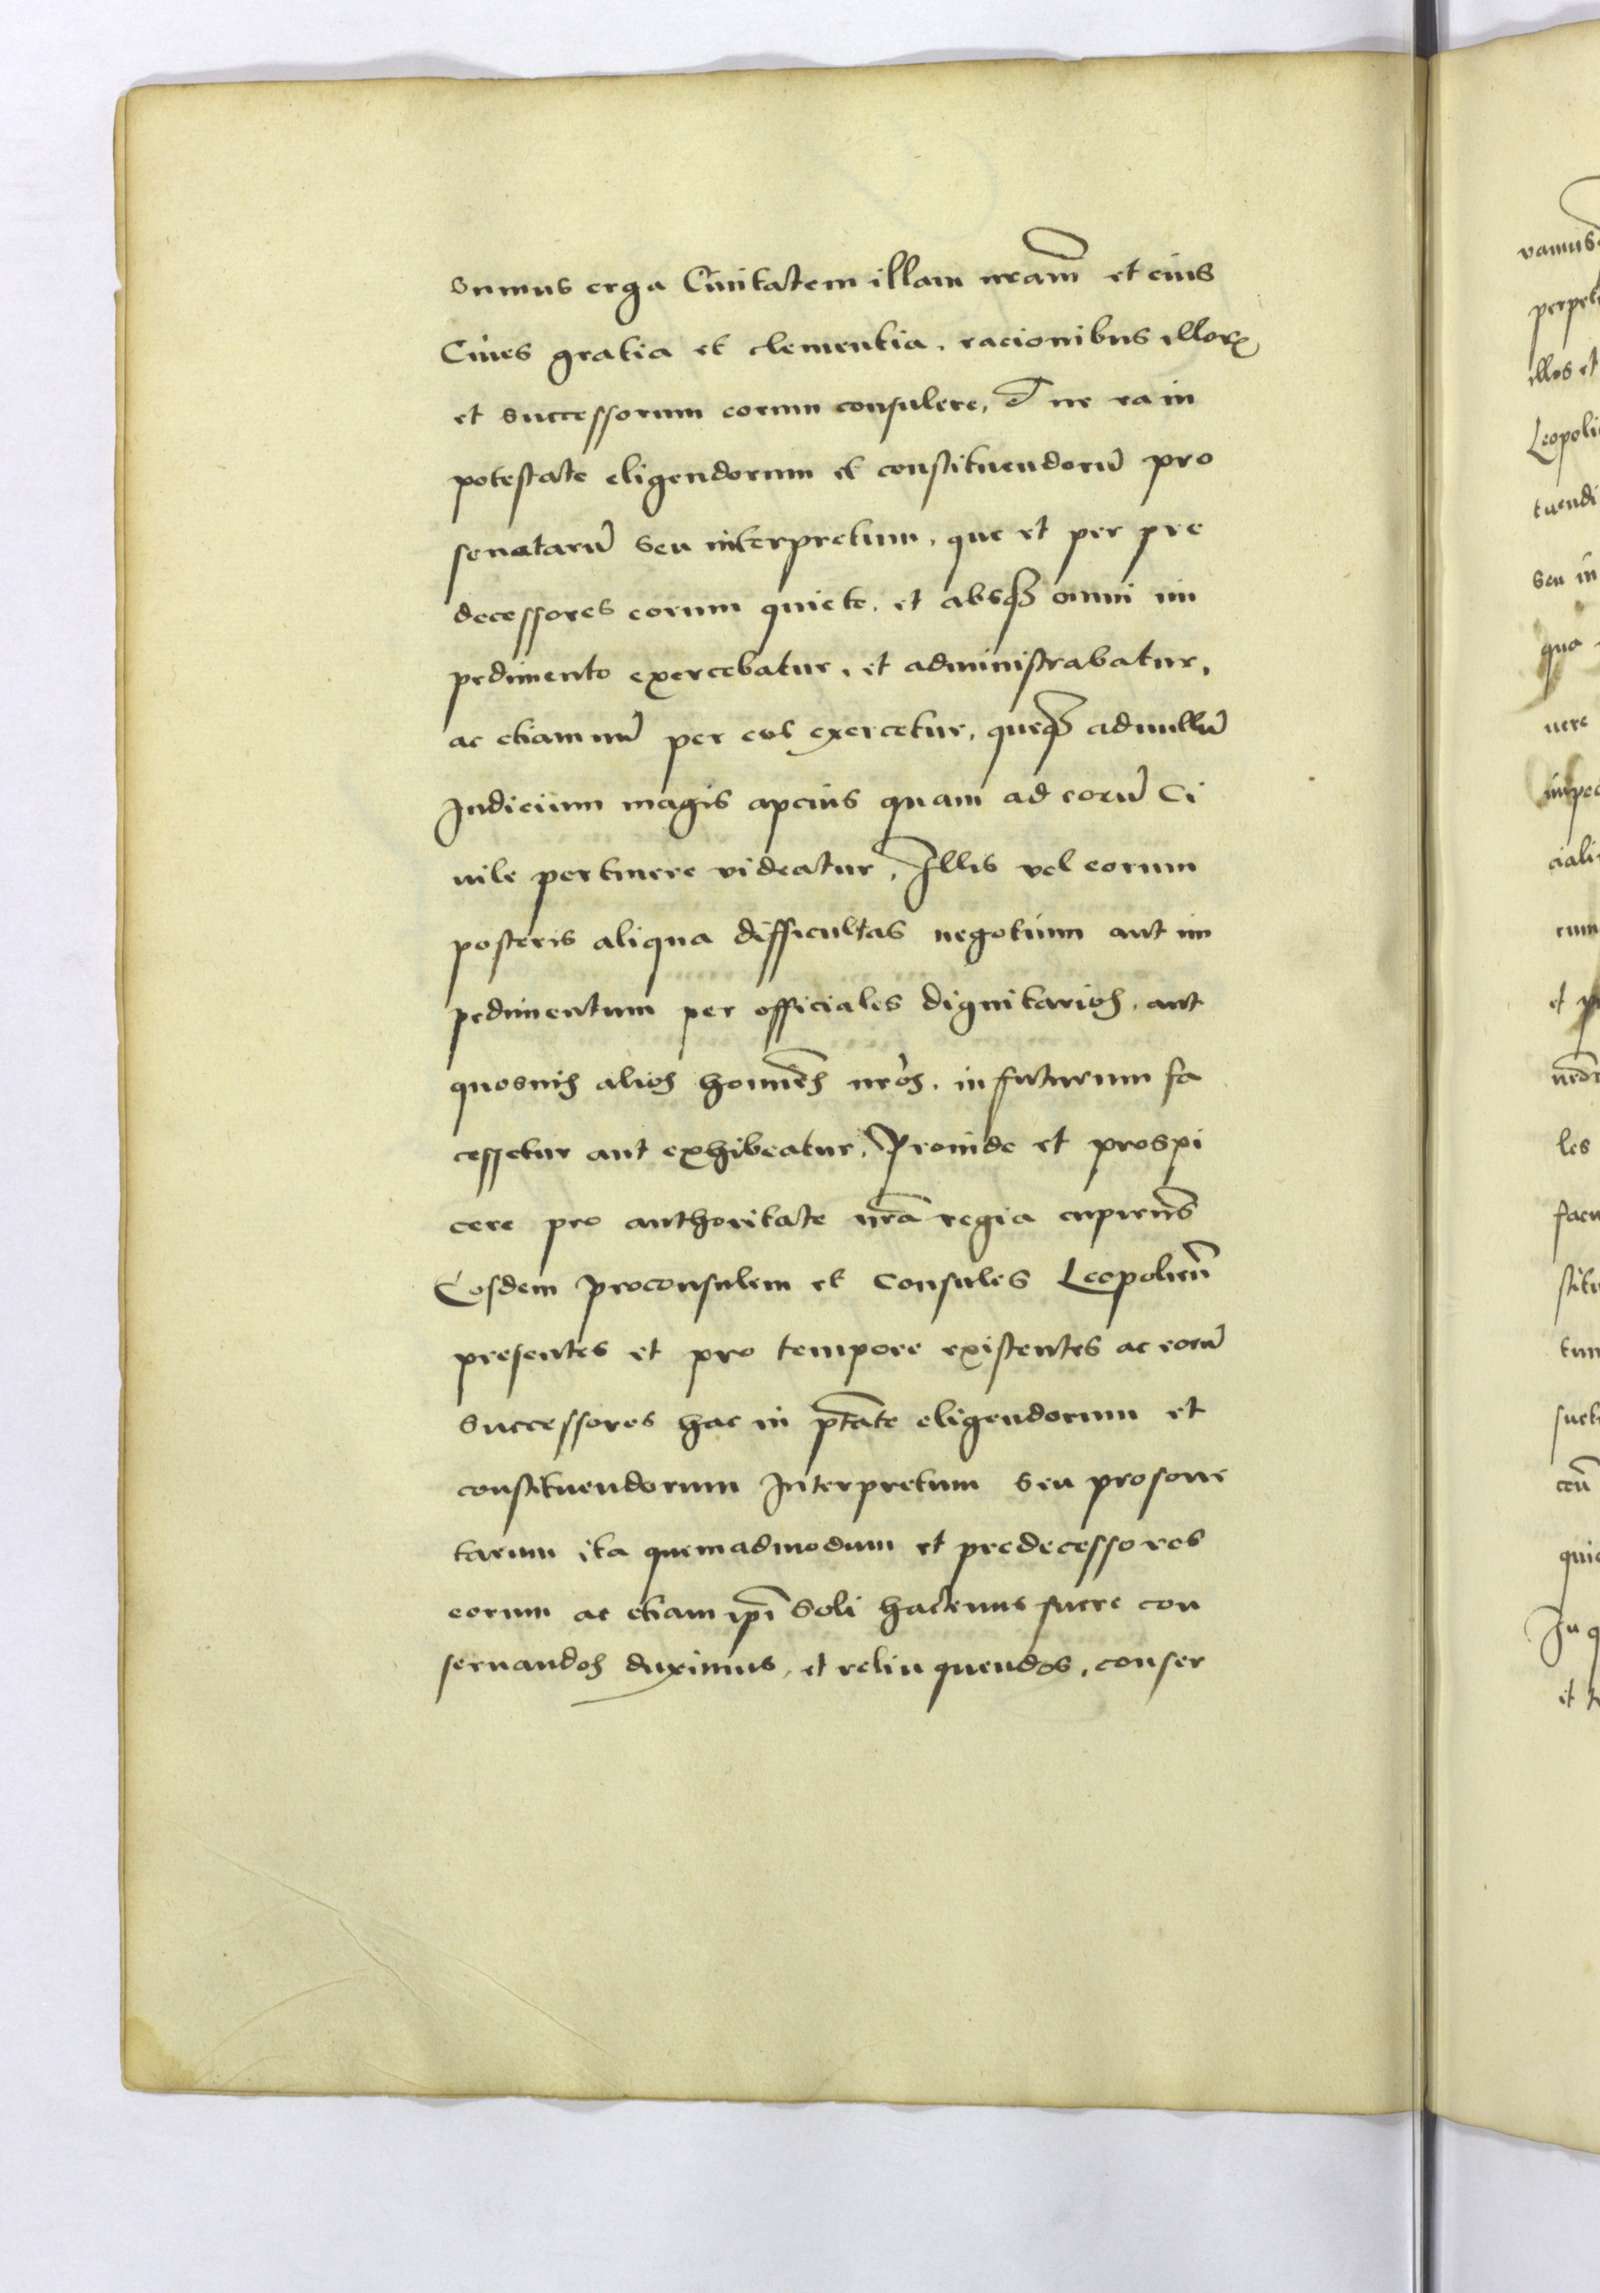 sumus erga Ciuitatem illam nr̃am et eius
Ciues gratia et clementia, racionibus illorꝫ
et successorum eorum consulere, et ne ea in
potestate eligendorum et constituendorũ pro
senatarũ seu interpretum, que et per pre
decessores eorum quiete, et absqꝫ omni im
pedimento exercebatur, et administrabatur,
ac etiam nũ per eos exercetur, queqꝫ ad nullũ
Judicium magis apcius quam ad eorũ Ci
uile pertinere videatur, Illis vel eorum
posteris aliqua difficultas negotium aut im
pedimentum per officiales dignitarios, aut
quosuis alios homĩes nr̃os, in futurum fa
cessetur aut exhibeatur, Proinde et prospi
cere pro authoritate nr̃a regia cupiens̃
Eosdem proconsulem et Consules Leopolien̄
presentes et pro tempore existentes ac eorũ
successores hac in ptãte eligendorum et
constituendorum Interpretum seu prosone
tarum ita quemadmodum et predecessores
eorum ac etiam ip̃i soli hactenus fuere con
seruandos duximus, et relinquendos, conser
vamus
illos et
seu in
les
et